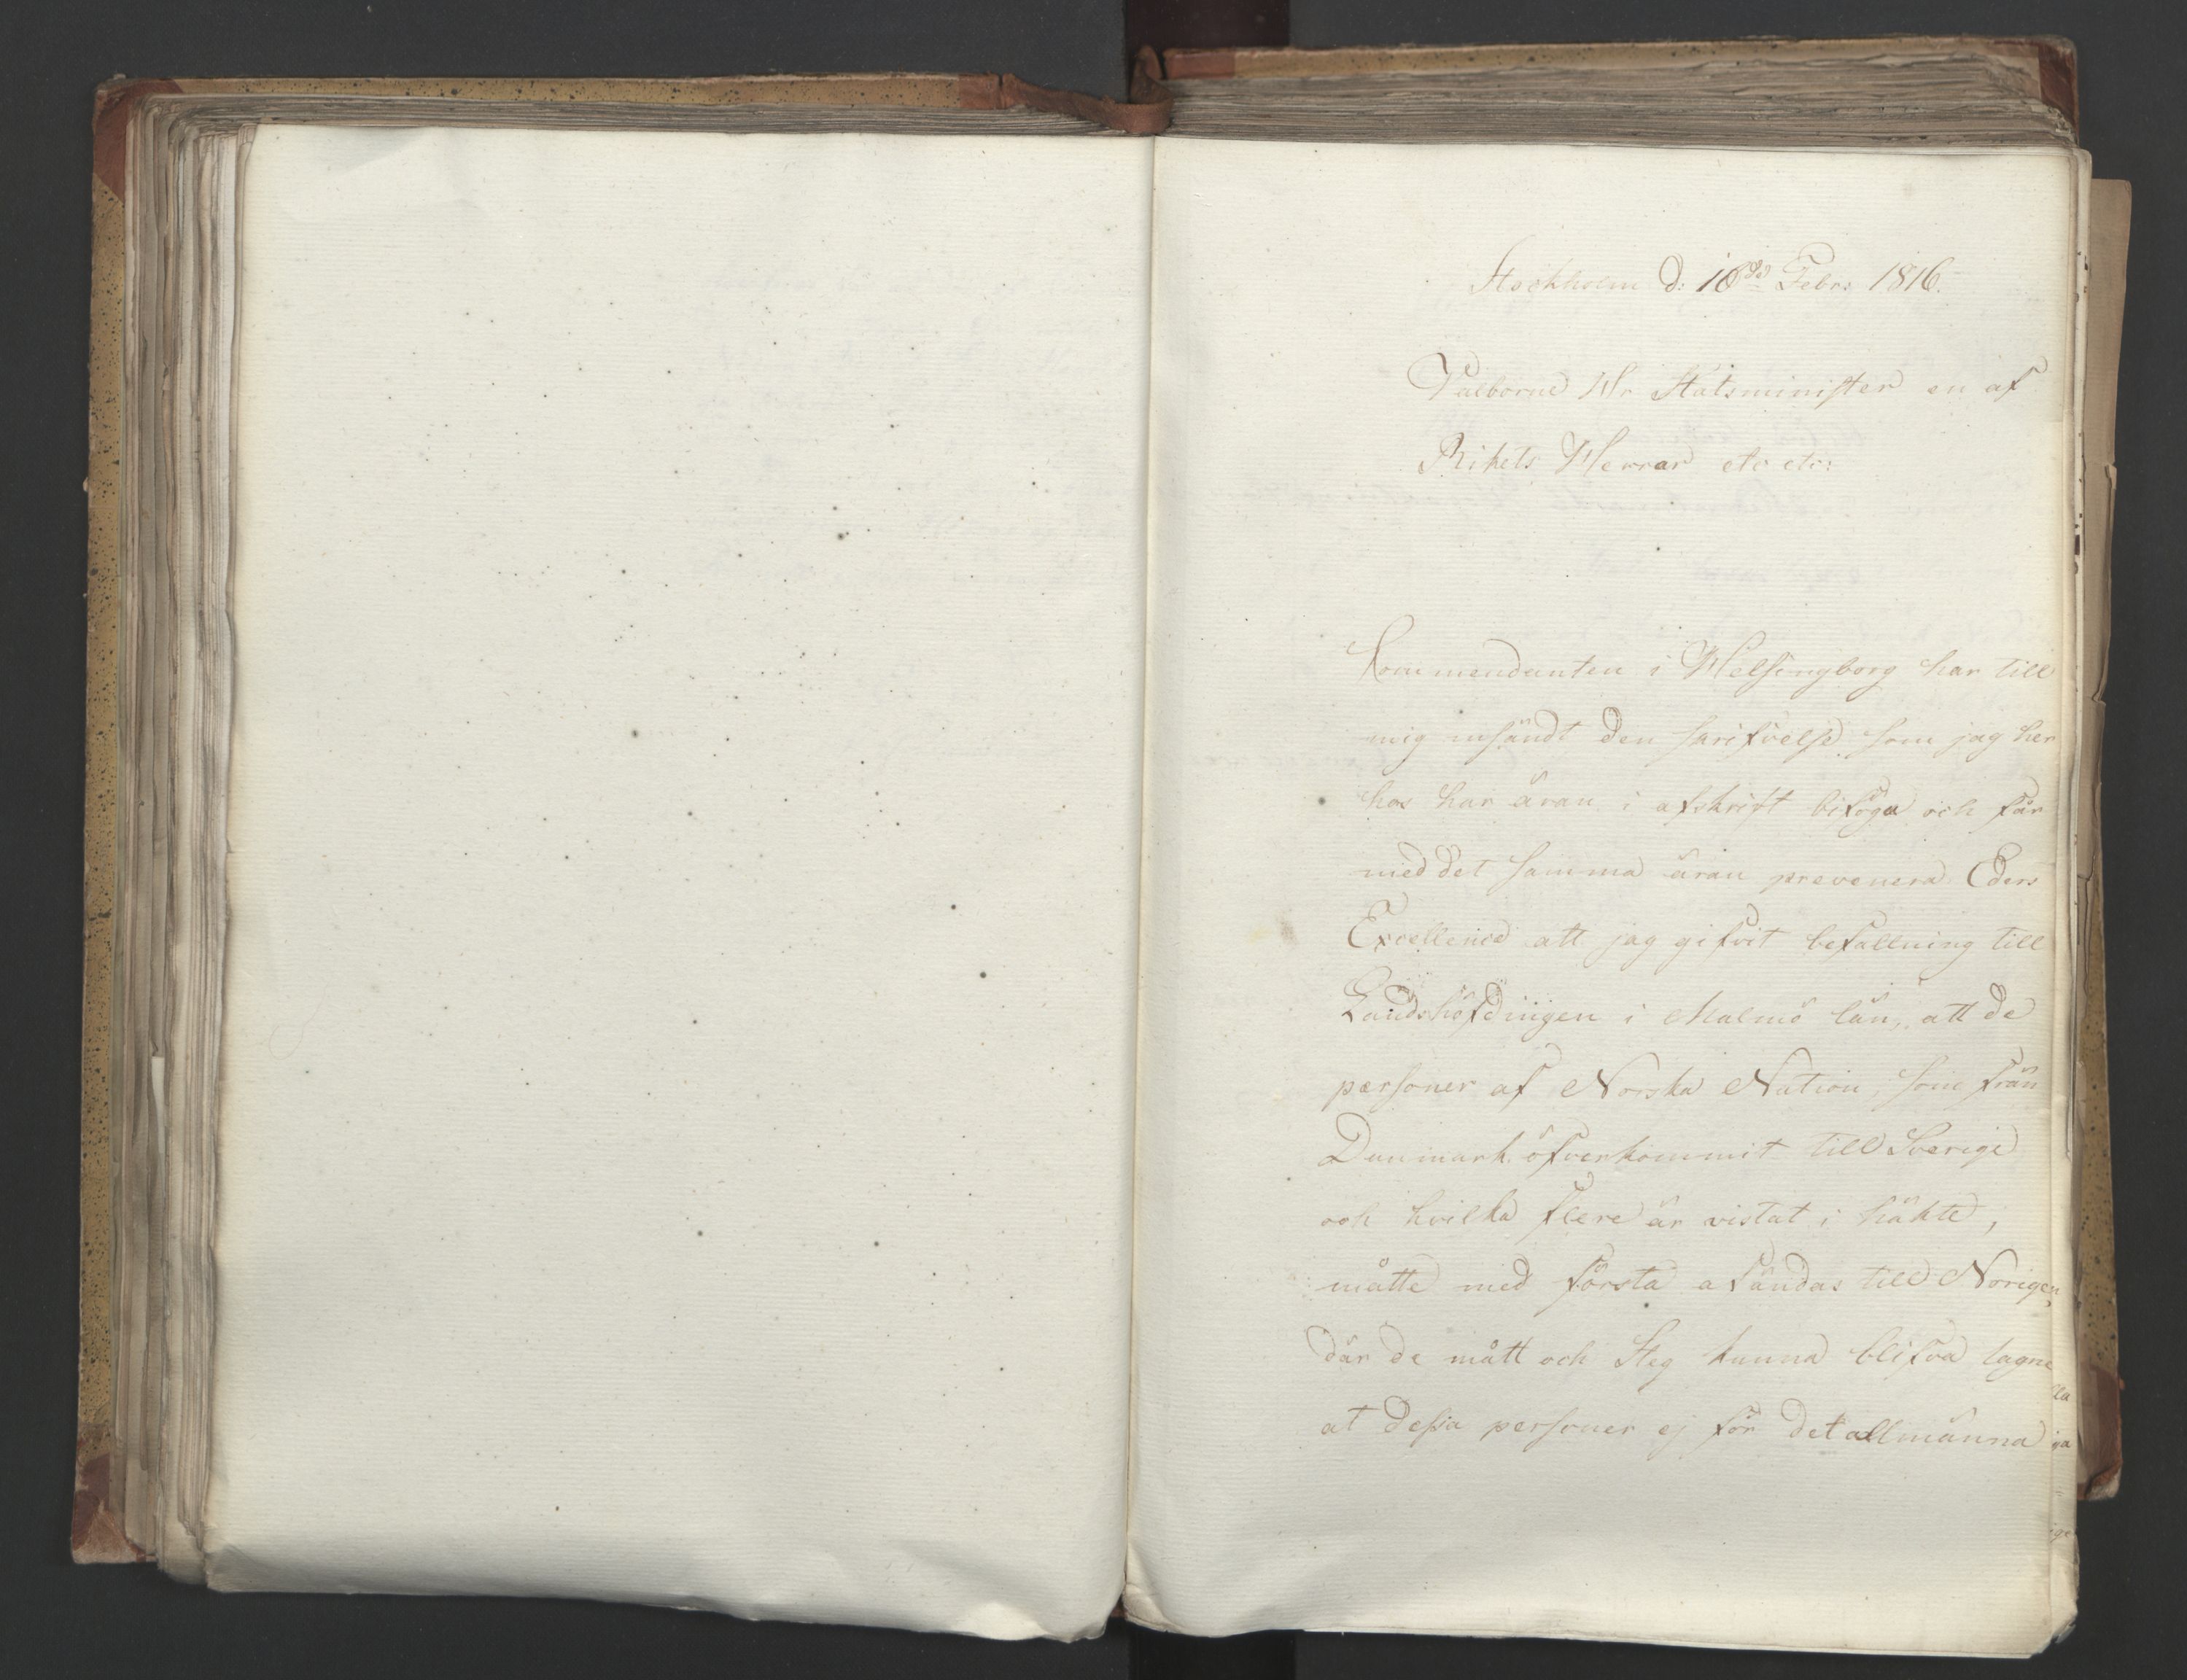 Stockholm d: 16de Febr: 1816.
Välborne Hr Statsminister en af
Rikets Herrar etc etc:
Kommendanten i Helsingborg har till
mig insändt den skrifvelse som jag här
hos har äran i afskrift bifoga och får
med det samma äran prevenera Eders
Excellence att jag gifvit befallning till
Landshöfdingen i Malmö län, att de
personer af Norska Nation, som från
Danmark öfverkommit till Sverige
och hvilka flere år vistat i häkte,
måtte med första afsändas till Norigen,
där de mått och Steg kunna blifva tagne
at dessa personer ej för det allmänna